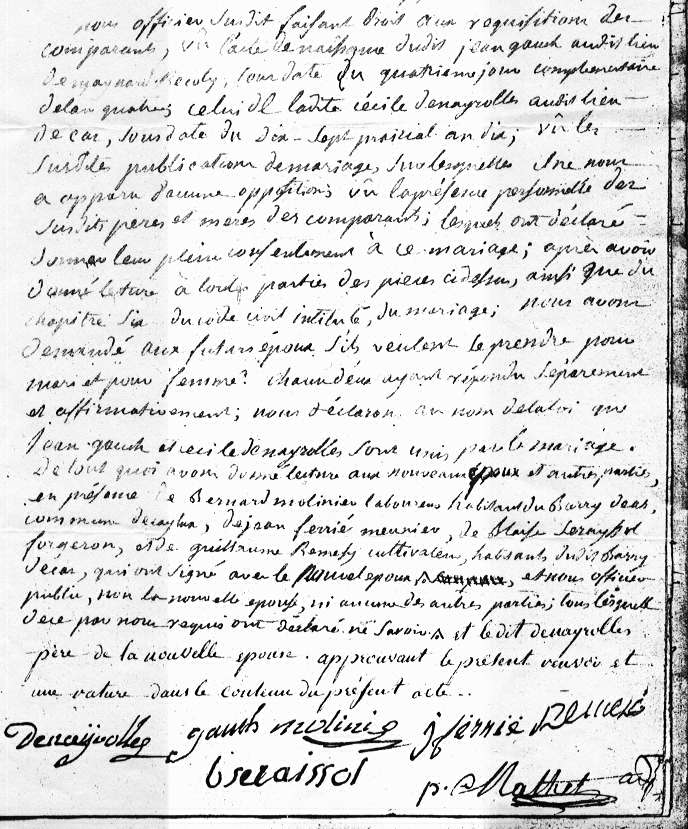 nous officier susdit faisant droit aux requisitions des
comparants, vû l'acte de naissance dudit jean gauch audit lieu
de, sous date du quatrieme jour complementaire
de lan quatre; celui de ladite cécile denayrolles audit lieu
de car, sous date du dix-sept prairial an dix; vû les
susdites publications de mariage, sur lesquelles il ne nous
a apparu d'aucune opposition; vû la présence personnelle des
susdits peres et meres des comparants; lesquels ont déclaré
donner leur plein consentement à ce mariage; après avoir
donné lecture à parties des pieces cidessus, ainsi que du
chapitre six du code civil intitulé, du mariage; nous avons
demandé aux futurs époux s'ils veulent se prendre pour
mari et pour femme? chacun d'eux ayant répondu séparement
et affirmativement; nous déclarons au nom de la loi que
jean gauch et cécile denayrolles sont unis par le mariage.
De tout quoi avons donné lecture aux nouveaux époux et autres parties,
en présence de Bernard molinier laboureur habitant du Barry decar,
commune decaylus, de jean ferrié meunier, de Blaise Seraissol
forgeron, et de guillaume Remesy cultivateur, habitants dudit Barry
decar, qui ont signé avec le nouvel epoux, et nous officier
public, non la nouvelle epouse, ni aucune des autres parties; tous lesquels
de ce par nous requis ont déclaré ne savoir et le dit denayrolles
père de la nouvelle epouse. approuvant le présent renvoi et
une rature dans le contenu du présent acte..
Denayrolles gauch molinié j ferrié Remesi
b seraissol
p. Mathet adj